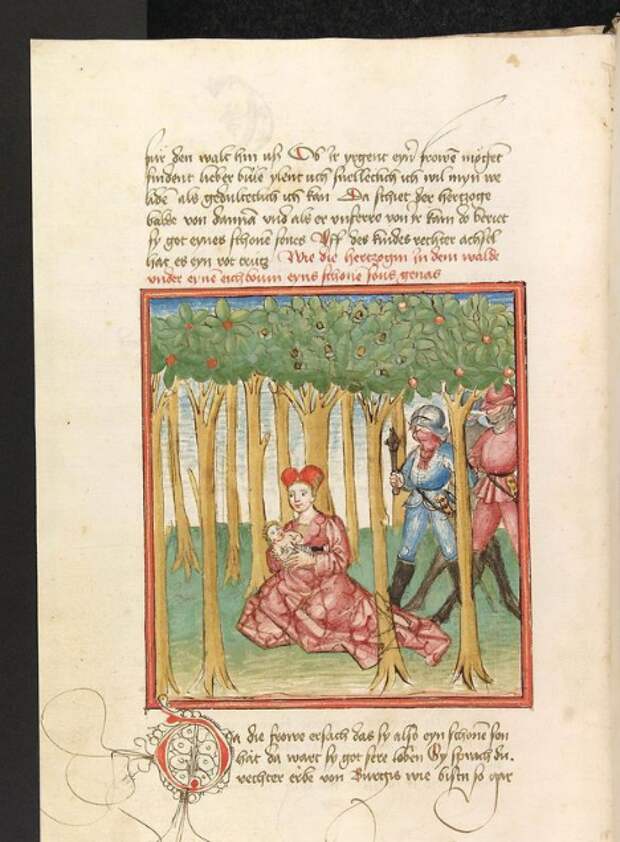 für den walt hin uß Ob ir yrgent eyn frowe͂ möget
findent lieber bube ylent uch snellec͂lich ich wil myn we
liden als gedulteclich ich kan Da schiet der hertzoge
babe von dannan vnd als er vnferro von ir kam do
sy got eynes schonen sones Vff des kindes rechter achsel
hat es eyn rot crutz Wie die hertzogin in dem walde
vnder eyne͂ eichboum eyns schone͂ sons genas
Da die frowe ersach das sy also eyn schonen son
hat da wart sy got sere loben Sy sprach du
rechter erbe von Burgis wie bistu so